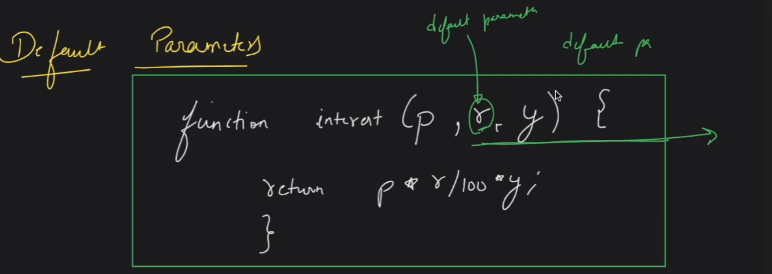 default parameter
Default Parameters
default pa
function interest (p, r, y) {
return p * r/100 * y;
}